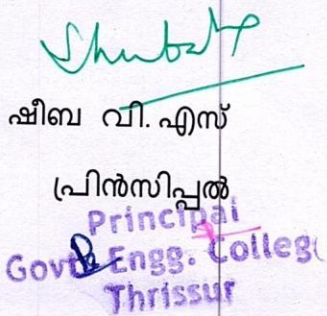 ഷീബ വി. എസ്
പ്രിൻസിപ്പൽ
Principal
Govt. Engg. College
Thrissur